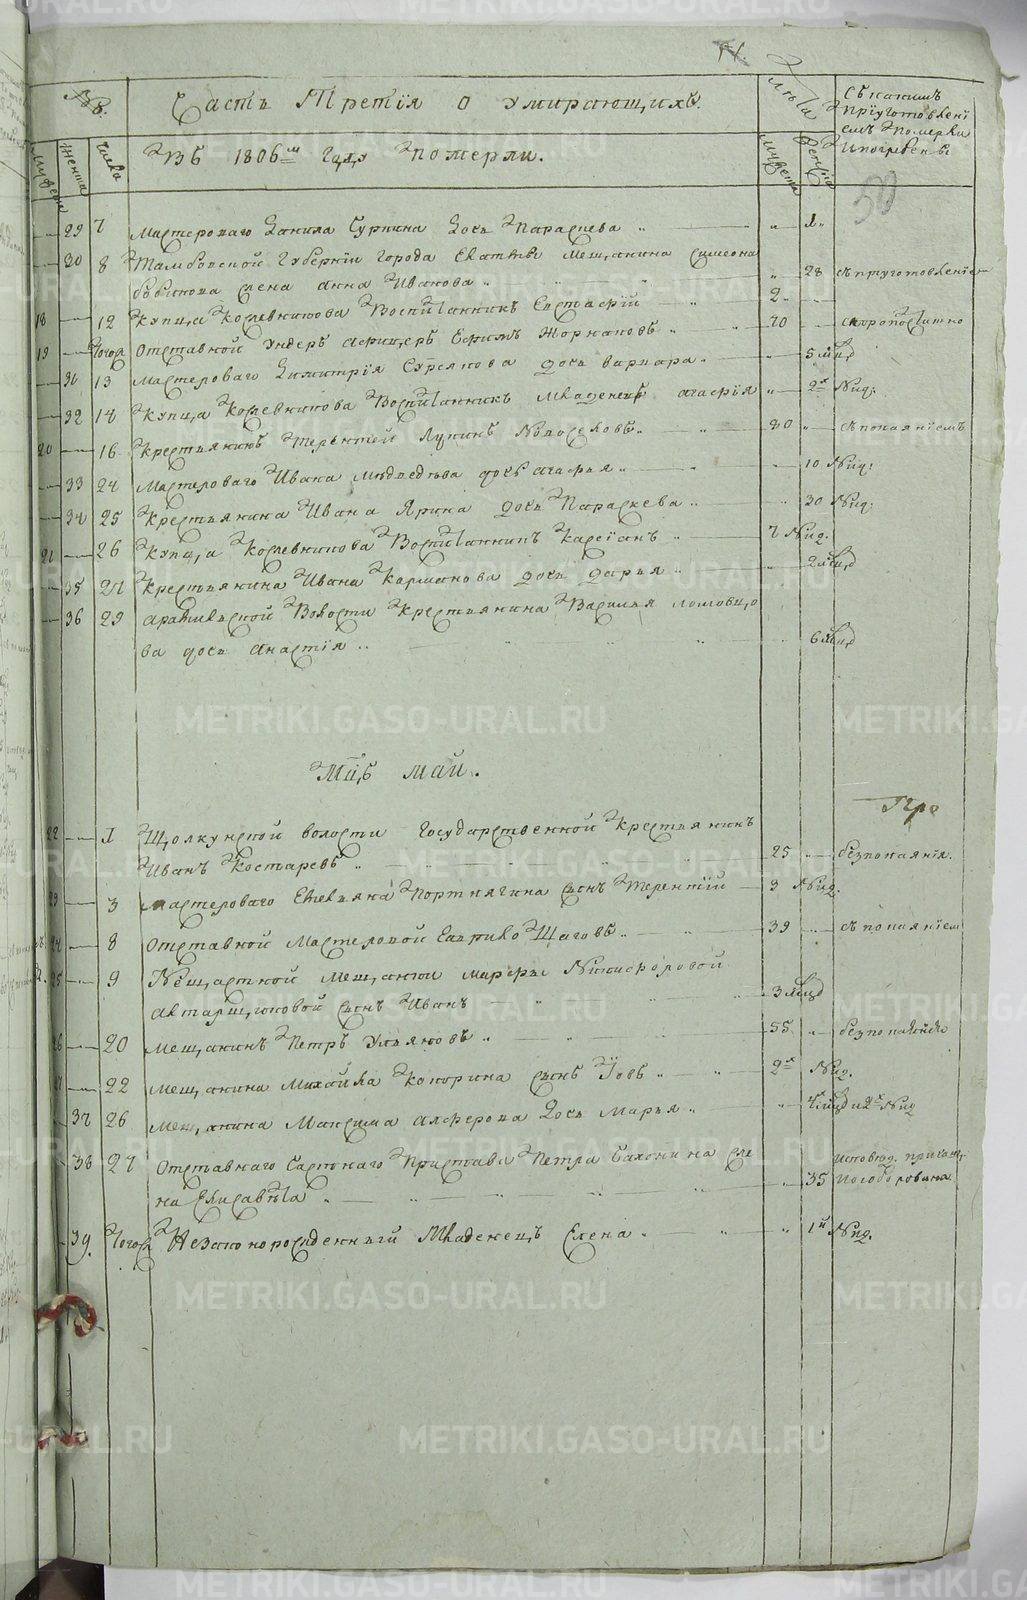 Часть Третїя о умирающихъ.
Лѣта
Съ какимъ
прїуготовленї
емъ померли
и погребены
Въ 1806м Году померли.
мужеска женска числа
30
29 7 Мастероваго Данила Суркина дочь Параскева 1
30 8 Тамбовской Губернїи города мещанина Симеона
жена Анна Иванова 28 съ прїуготовленїе
18 12 Купца Кожевникова воспитанникъ Евстафїй 2
19 Тогож Отставной Ундеръ Афицеръ Ефимъ Жорнаковъ 70 скоропостижно
31 13 Мастероваго Димитрїя дочь Варвара 5 мцъ
32 14 Купца Кожевникова воспитанникъ младенецъ Агафїя 2х Нид:
20 16 Крестьянинъ Терентей Лукинъ Новоселовъ 80 съ покаянїемъ
33 24 Мастероваго Ивана Медведева дочь Агафья 10 Нид:
34 25 Крестьянина Ивана Ярина дочь Параскева 30 Нид:
21 26 Купца Кожевникова воспитанникъ Касїанъ 7 Нид.
35 27 Крестьянина Ивана Карманова дочь Дарья 2 мцъ
36 29 Арамильской Волости Крестьянина Василья Ломовцо
ва дочь Анастїя 6 мцъ
Мцъ май.
22 1 Щолкунской волости Государственной Крестьянинъ
Иванъ Костаревъ 25 безпокаянїя.
23 3 Мастероваго Емельяна Портнягина сынъ Терентїй 3 Нид.
24 8 Отставной Мастеровой Гаврило Щаговъ 39 съ покаянїем
25 9 Нещастной мещанки Марфы Никифоровой
сынъ Иванъ 3 мцъ
26 20 Мещанинъ Петръ Ульяновъ 55 безпокаянїя
27 22 Мещанина Михайла Кокорина сынъ Їовъ 2х Нид.
37 26 Мещанина Максима Алферова дочь Марья 4х мцъ и 2х Нид
38 27 Отставнаго Частнаго Пристава Петра же
на Елисавета 35 исповед. причащ.
и особорована
39. Тогож Незаконорожденный Младенецъ Елена 1й Нид.